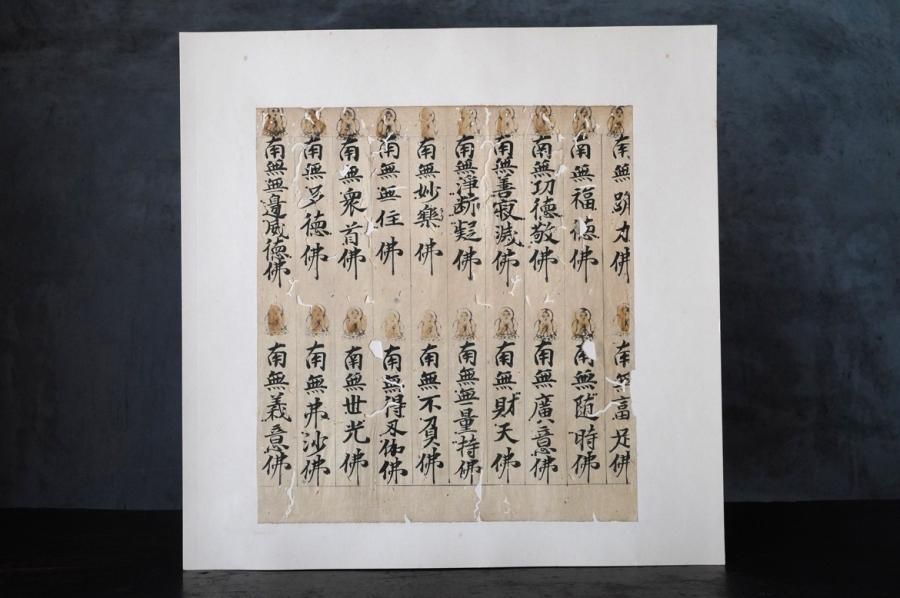 南無力佛
南無富足佛
南無福德佛
南無随時佛
南無功德敬佛
南無廣意佛
南無善寂滅佛
南無財天佛
南無淨断疑佛
南無無量持佛
南無妙樂佛
南無不負佛
南無無住佛
南無得叉伽佛
南無衆首佛
南無世光佛
南無多德佛
南無弗沙佛
南無無邊威德佛
南無義意佛